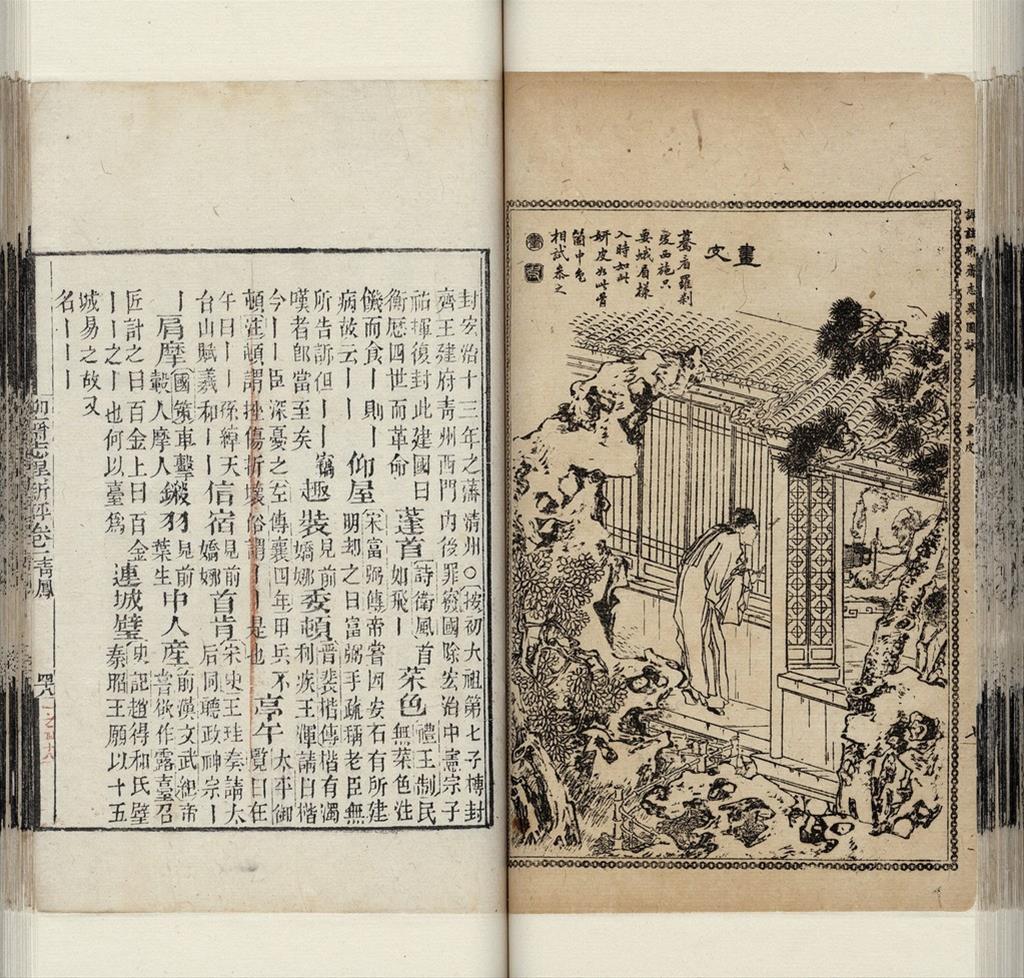 詳註聊齋志異圖詠 卷一 畫皮
七
畫皮
驀看羅剎
愛西施只
要蛾眉樣
入時如此
妍皮如此骨
箇中色
相試參之
封安治十三年之藩清州〇按初大祖第七子博封
齊王建府青州西門內後罪廢國除宏治中憲宗子
祐揮復封此建國日 蓬首 詩衛風首 菜色 禮王制民
衡歷四世而革命 如飛丨 無菜色注
饑而食丨則丨 仰屋 宋富弼傳帝嘗因安石有所建
病故云丨丨 明却之日富弼手疏稱老臣無
所告訴但丨丨竊 趣裝 見前嬌娜 委頓 晉裴楷傳楷有濁
嘆者即當至矣 利疾王渾請曰楷
今丨丨臣深憂之左傳襄四年甲兵不 亭午 太平御
頓注頓謂挫傷折壞俗謂丨丨是也 覽曰在
午日丨丨孫綽天 信宿 見前嬌娜 首肯 宋史王珪奏請大
台山賦羲和丨丨 后同聽政神宗丨
丨 肩摩 國策車擊轂人摩人 鎩羽 見前葉生 中人産 前漢文武紀帝嘗欲作露臺召
匠計之曰百金上曰百金 連城璧 史記趙得和氏璧
丨丨之丨也何以臺爲 秦昭王願以十五
城易之故又
名丨丨丨
聊齋志異新評卷二青鳳